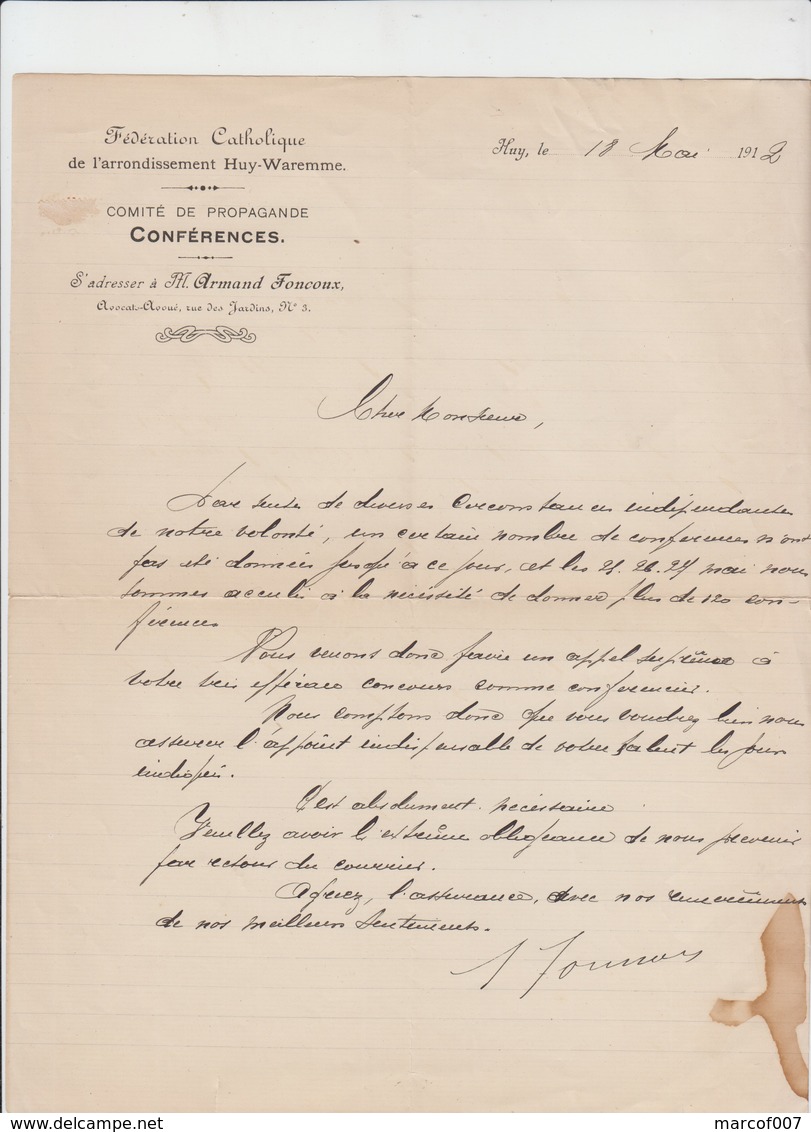 Fédération Catholique
de l'arrondissement Huy-Waremme.
COMITÉ DE PROPAGANDE
CONFÉRENCES.
S'adresser à M. Armand Foncoux,
Avocat-Avoué, rue des Jardins, N° 3.
Huy, le 18 Mai 1912
Cher Monsieur,
Par suite de diverses circonstances indépendantes
de notre volonté, un certain nombre de conférences n'ont
pas été données jusqu'à ce jour, et les 25. 26. 27 mai nous
sommes acculés à la nécéssité de donner plus de 120 con-
férences
Nous venons donc faire un appel suprême à
votre très efficace concours comme conférencier.
Nous comptons donc que vous voudrez bien nous
assurer l'appoint indispensable de votre talent les jours
indiqués.
C'est absolument nécessaire
Veuillez avoir l'extrême obligeance de nous prévenir
par retour du courrier.
Agréez, l'assurance, avec nos remerciements
de nos meilleurs sentiments.
A Foncoux
marcof007